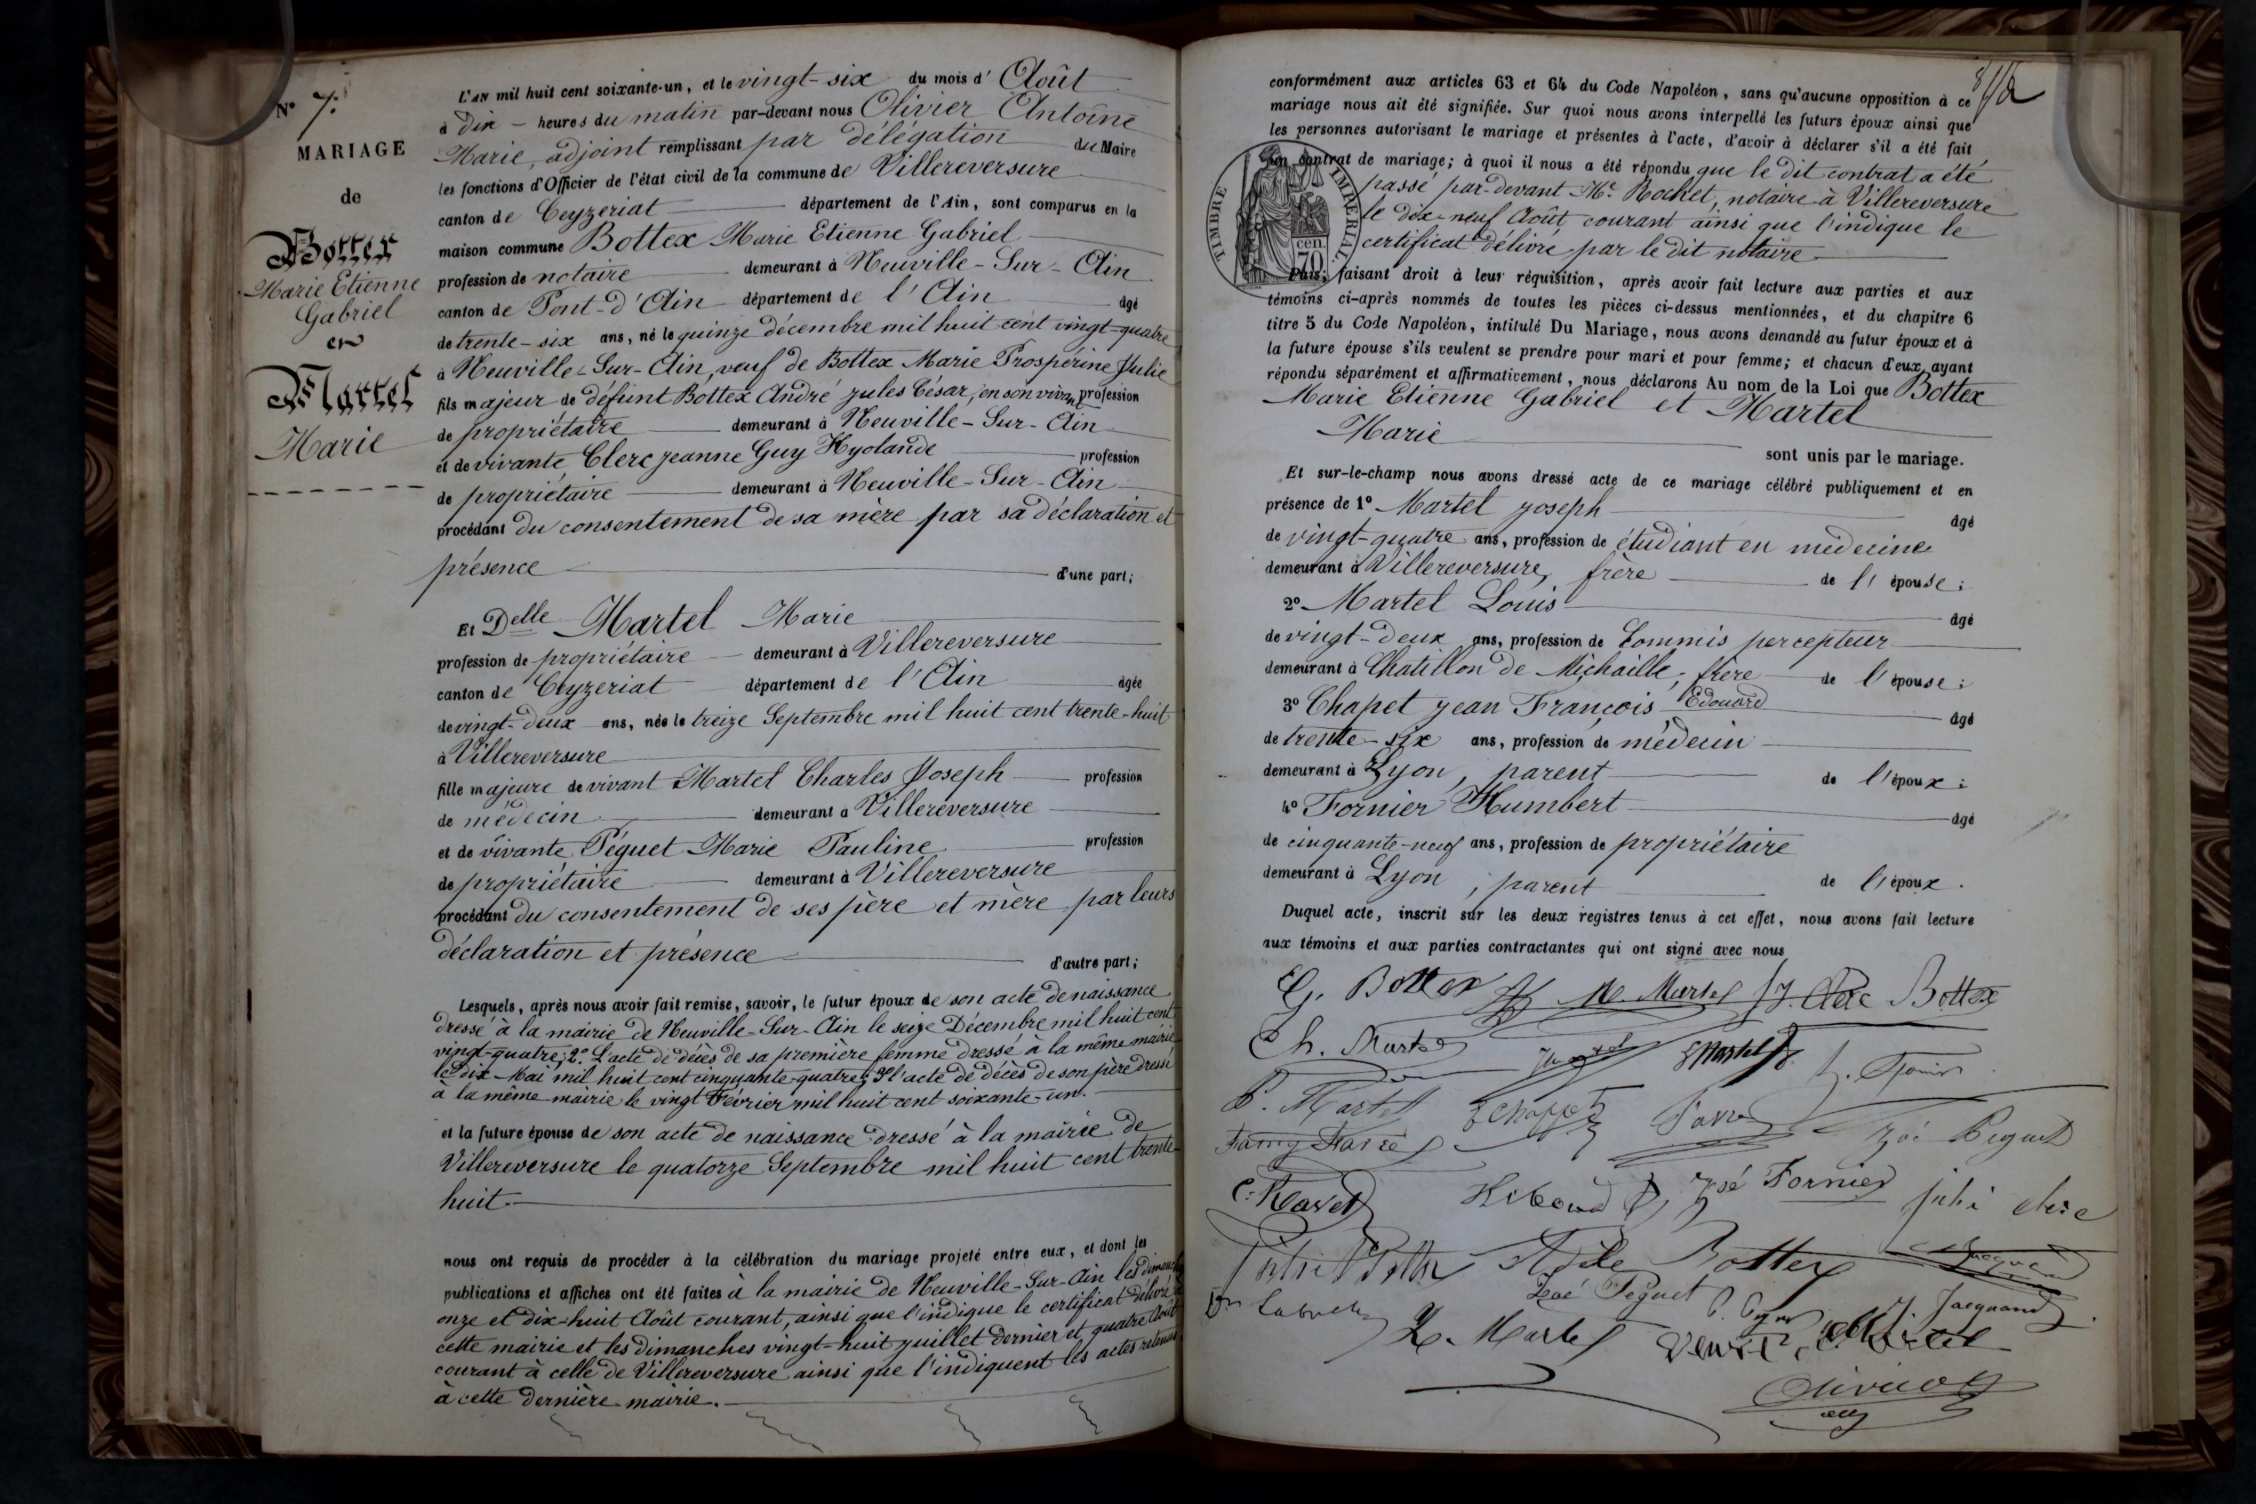 N° 7.
MARIAGE
de
Bottex
Marie Etienne
Gabriel
et
Martel
Marie
L'AN mil huit cent soixante-un, et le vingt-six du mois d' Août
à dix heures du matin par-devant nous Olivier Antoine
Marie, adjoint remplissant par délégation du Maire
les fonctions d'Officier de l'état civil de la commune de Villereversure
canton de Ceyzeriat département de l'Ain, sont comparus en la
maison commune Bottex Marie Etienne Gabriel
profession de notaire demeurant à Neuville-Sur-Ain
canton de Pont-d'Ain département de l'Ain âgé
de trente-six ans, né le quinze décembre mil huit cent vingt-quatre
à Neuville-Sur-Ain, veuf de Bottex Marie Prospérine Julie
fils majeur de défunt Bottex André Jules César, en son vivant profession
de propriétaire demeurant à Neuville-Sur-Ain
et de vivante Clerc Jeanne Guy Hyolande profession
de propriétaire demeurant à Neuville-Sur-Ain
procédant du consentement de sa mère par sa déclaration et
présence d'une part;
Et Delle Martel Marie
profession de propriétaire demeurant à Villereversure
canton de Ceyzeriat département de l'Ain âgée
de vingt-deux ans, née le treize Septembre mil huit cent trente-huit
à Villereversure
fille majeure de vivant Martel Charles Joseph profession
de médecin demeurant à Villereversure
et de vivante Péguet Marie Pauline profession
de propriétaire demeurant à Villereversure
procédant du consentement de ses père et mère par leurs
déclaration et présence d'autre part;
Lesquels, après nous avoir fait remise, savoir, le futur époux de son acte de naissance
dressé à la mairie de Neuville-Sur-Ain le seize Décembre mil huit cent
vingt-quatre; 2° L'acte de décès de sa première femme dressé à la même mairie
le dix Mai mil huit cent cinquante-quatre; 3° l'acte de décès de son père dressé
à la même mairie le vingt Février mil huit cent soixante-un.
et la future épouse de son acte de naissance dressé à la mairie de
Villereversure le quatorze Septembre mil huit cent trente-
huit
nous ont requis de procéder à la célébration du mariage projeté entre eux, et dont les
publications et affiches ont été faites à la mairie de Neuville-Sur-Ain les dimanches
onze et dix-huit Août courant, ainsi que l'indique le certificat délivré
cette mairie et les dimanches vingt-huit Juillet dernier et quatre Août
courant à celle de Villereversure ainsi que l'indiquent les actes retenus
à cette dernière mairie.
conformément aux articles 63 et 64 du Code Napoléon, sans qu'aucune opposition à ce
mariage nous ait été signifiée. Sur quoi nous avons interpellé les futurs époux ainsi que
les personnes autorisant le mariage et présentes à l'acte, d'avoir à déclarer s'il a été fait
un contrat de mariage; à quoi il nous a été répondu que le dit contrat a été
passé par-devant Me Rochet, notaire à Villereversure
le dix-neuf Août courant ainsi que l'indique le
certificat délivré par le dit notaire
TIMBRE IMPÉRIAL
70 cen.
Puis, faisant droit à leur réquisition, après avoir fait lecture aux parties et aux
témoins ci-après nommés de toutes les pièces ci-dessus mentionnées, et du chapitre 6
titre 5 du Code Napoléon, intitulé Du Mariage, nous avons demandé au futur époux et à
la future épouse s'ils veulent se prendre pour mari et pour femme; et chacun d'eux ayant
répondu séparément et affirmativement, nous déclarons Au nom de la Loi que Bottex
Marie Etienne Gabriel et Martel
Marie
sont unis par le mariage.
Et sur-le-champ nous avons dressé acte de ce mariage célébré publiquement et en
présence de 1° Martel Joseph âgé
de vingt-quatre ans, profession de étudiant en médecine
demeurant à Villereversure, frère de l'épouse;
2° Martel Louis âgé
de vingt-deux ans, profession de Commis percepteur
demeurant à Chatillon de Michaille, frère de l'épouse;
3° Chapet Jean François, Edouard âgé
de trente-six ans, profession de médecin
demeurant à Lyon, parent de l'époux;
4° Fornier Humbert âgé
de cinquante-neuf ans, profession de propriétaire
demeurant à Lyon, parent de l'époux.
Duquel acte, inscrit sur les deux registres tenus à cet effet, nous avons fait lecture
aux témoins et aux parties contractantes qui ont signé avec nous
G. Bottex M. Martel J. Clerc Bottex
Ch. Martel Martel
P. Martel
Fanny Favre Zoé Peguet
C. Ravet Fornier Clerc
Adèle Bottex
Zoé Péguet J. Jacquand
L. Martel
Olivier